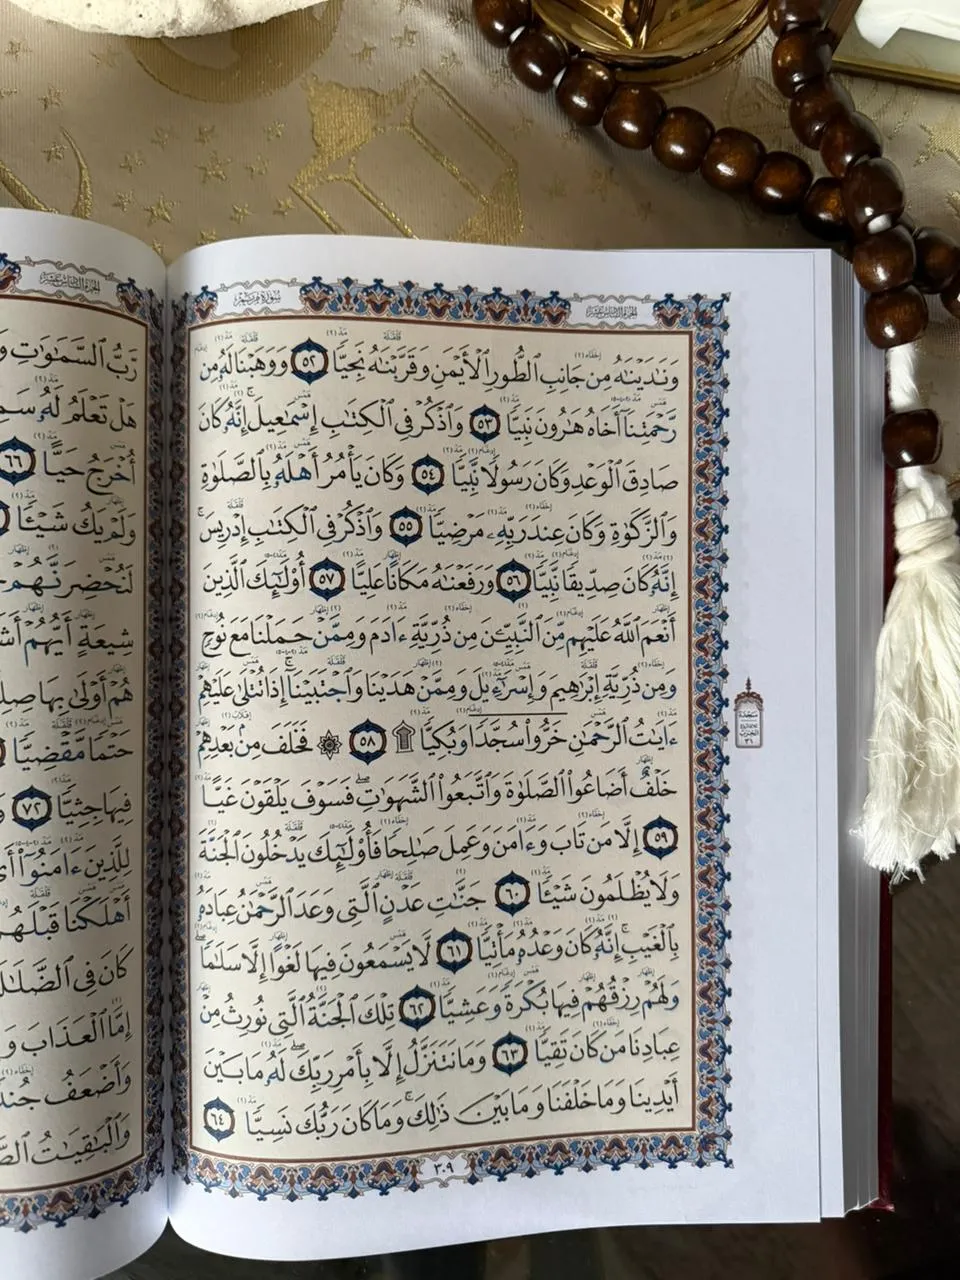 الجزء السادس عشر
سورة مريم
وَنَٰدَيْنَٰهُ مِن جَانِبِ ٱلطُّورِ ٱلْأَيْمَنِ وَقَرَّبْنَٰهُ نَجِيًّا ٥٢ وَوَهَبْنَا لَهُۥ مِن
رَّحْمَتِنَآ أَخَاهُ هَٰرُونَ نَبِيًّا ٥٣ وَٱذْكُرْ فِى ٱلْكِتَٰبِ إِسْمَٰعِيلَ ۚ إِنَّهُۥ كَانَ
صَادِقَ ٱلْوَعْدِ وَكَانَ رَسُولًا نَّبِيًّا ٥٤ وَكَانَ يَأْمُرُ أَهْلَهُۥ بِٱلصَّلَوٰةِ
وَٱلزَّكَوٰةِ وَكَانَ عِندَ رَبِّهِۦ مَرْضِيًّا ٥٥ وَٱذْكُرْ فِى ٱلْكِتَٰبِ إِدْرِيسَ ۚ
إِنَّهُۥ كَانَ صِدِّيقًا نَّبِيًّا ٥٦ وَرَفَعْنَٰهُ مَكَانًا عَلِيًّا ٥٧ أُو۟لَٰٓئِكَ ٱلَّذِينَ
أَنْعَمَ ٱللَّهُ عَلَيْهِم مِّنَ ٱلنَّبِيِّۦنَ مِن ذُرِّيَّةِ ءَادَمَ وَمِمَّنْ حَمَلْنَا مَعَ نُوحٍ
وَمِن ذُرِّيَّةِ إِبْرَٰهِيمَ وَإِسْرَٰٓءِيلَ وَمِمَّنْ هَدَيْنَا وَٱجْتَبَيْنَآ ۚ إِذَا تُتْلَىٰ عَلَيْهِمْ
ءَايَٰتُ ٱلرَّحْمَٰنِ خَرُّوا۟ سُجَّدًا وَبُكِيًّا ۩ ٥٨ ۞ فَخَلَفَ مِنۢ بَعْدِهِمْ
خَلْفٌ أَضَاعُوا۟ ٱلصَّلَوٰةَ وَٱتَّبَعُوا۟ ٱلشَّهَوَٰتِ ۖ فَسَوْفَ يَلْقَوْنَ غَيًّا
٥٩ إِلَّا مَن تَابَ وَءَامَنَ وَعَمِلَ صَٰلِحًا فَأُو۟لَٰٓئِكَ يَدْخُلُونَ ٱلْجَنَّةَ
وَلَا يُظْلَمُونَ شَيْـًٔا ٦٠ جَنَّٰتِ عَدْنٍ ٱلَّتِى وَعَدَ ٱلرَّحْمَٰنُ عِبَادَهُۥ
بِٱلْغَيْبِ ۚ إِنَّهُۥ كَانَ وَعْدُهُۥ مَأْتِيًّا ٦١ لَّا يَسْمَعُونَ فِيهَا لَغْوًا إِلَّا سَلَٰمًا ۖ
وَلَهُمْ رِزْقُهُمْ فِيهَا بُكْرَةً وَعَشِيًّا ٦٢ تِلْكَ ٱلْجَنَّةُ ٱلَّتِى نُورِثُ مِنْ
عِبَادِنَا مَن كَانَ تَقِيًّا ٦٣ وَمَا نَتَنَزَّلُ إِلَّا بِأَمْرِ رَبِّكَ ۖ لَهُۥ مَا بَيْنَ
أَيْدِينَا وَمَا خَلْفَنَا وَمَا بَيْنَ ذَٰلِكَ ۚ وَمَا كَانَ رَبُّكَ نَسِيًّا ٦٤
٣٠٩
سجدة
الجزء السادس عشر
رَّبُّ ٱلسَّمَٰوَٰتِ
هَلْ تَعْلَمُ لَهُۥ
أُخْرَجُ حَيًّا ٦٦
وَلَمْ يَكُ شَيْـًٔا
لَنُحْضِرَنَّهُمْ
شِيعَةٍ أَيُّهُمْ
هُمْ أَوْلَىٰ بِهَا
حَتْمًا مَّقْضِيًّا
فِيهَا جِثِيًّا ٧٢
لِلَّذِينَ ءَامَنُوٓا۟
أَهْلَكْنَا قَبْلَهُم
كَانَ فِى
إِمَّا ٱلْعَذَابَ
وَأَضْعَفُ
وَٱلْبَٰقِيَٰتُ